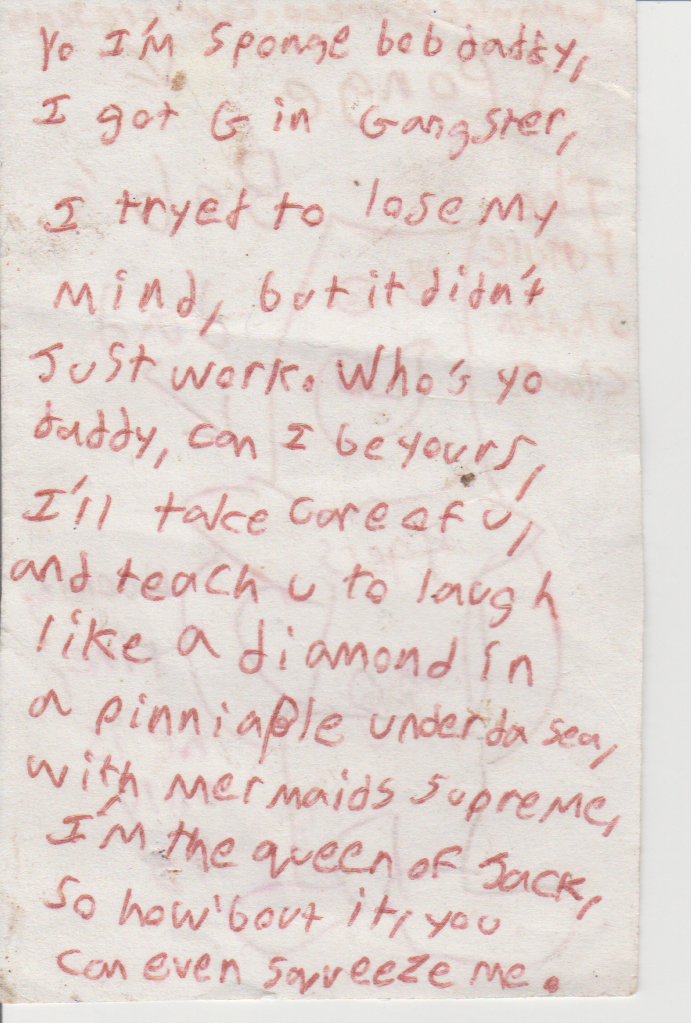 Yo I'm Sponge bob daddy,
I got G in Gangster,
I tryed to lose My
Mind, but it didn't
Just work. Who's yo
daddy, can I be yours,
I'll take care of u,
and teach u to laugh
like a diamond in
a pinniaple under da sea,
with Mermaids supreme,
I'M the queen of Jack,
So how'bout it, you
can even squeeze me.